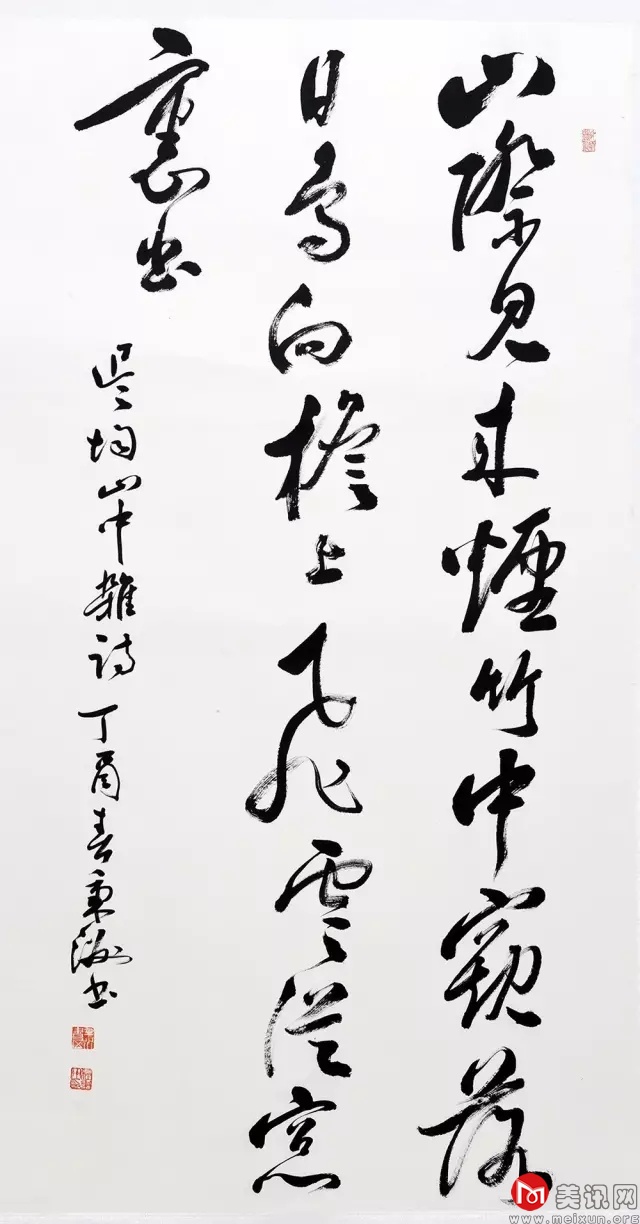 山際見来煙竹中窺落
日鳥向檐上飛雲從窓
裏出
吳均山中雜詩丁酉春秉洲書
美讯网
www.meixun.org